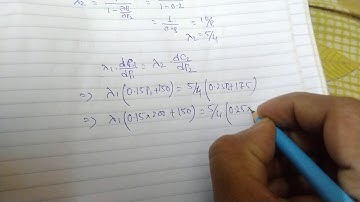 λ₂ = 1/(1 - ∂P_L/∂P₂) = 1/(1-0.2)
= 1/0.8 =
λ₂ = 5/4
λ₁ · dC₁/dP₁ = λ₂ dC₂/dP₂
⇒ λ₁ (0.15P₁+150) = 5/4 (0.25P₂+175)
⇒ λ₁ (0.15×200 + 150) = 5/4 (0.25×